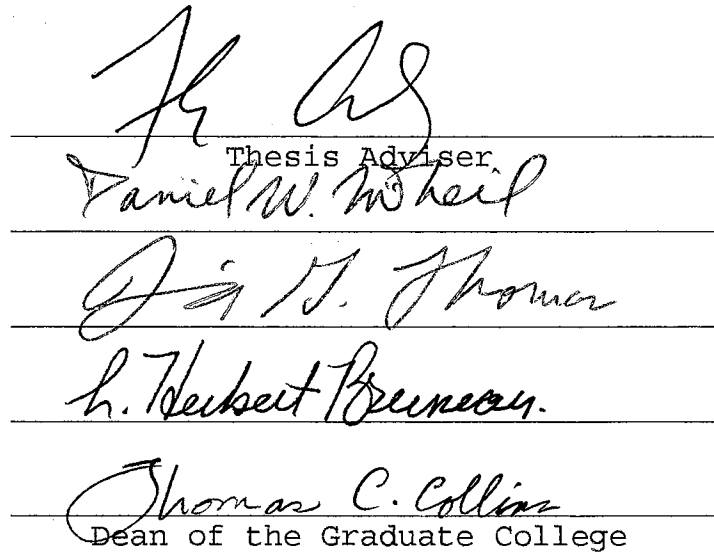 Thesis Adviser
Daniel W. McNeil
G. Thomas
L. Herbert Bruneau.
Thomas C. Collins
Dean of the Graduate College